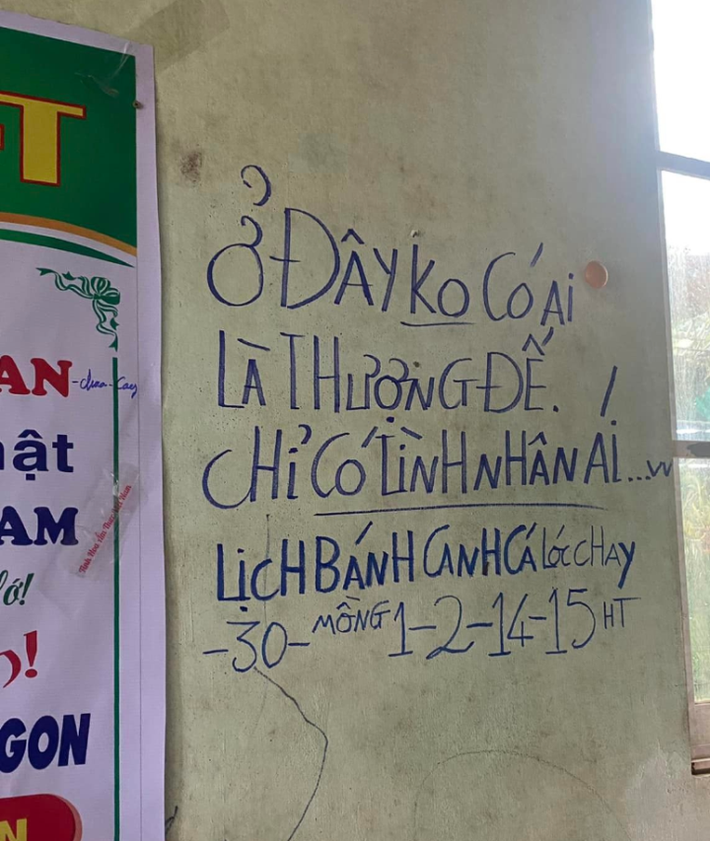 T
AN-chua-Cay
ật
AM
ớ!
!
GON
N
Ở ĐÂY KO CÓ AI
LÀ THƯỢNG ĐẾ.
CHỈ CÓ TÌNH NHÂN ÁI...VV
LỊCH BÁNH CANH CÁ LÓC CHAY
-30-MỒNG 1-2-14-15 HT